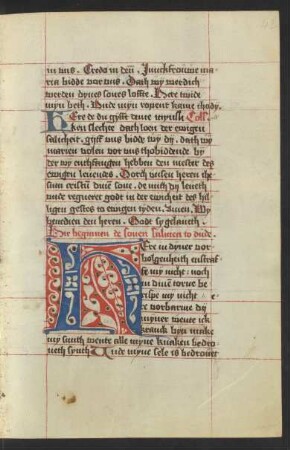 in uns. Credo in deū. Junckfrouwe ma
ria bidde vor uns. Dath wy werdich
werden dynes soues loffte. Here twide
myn beth. Unde myn ropent kame thody.
Here de du gyfft dente Coll
ken slechte dath loen der ewigen
salicheit. gyff uns bidde wy dy. dath wy
marien volen vor uns thobiddende by
der wy enthfangen hebben den mester des
ewigen leuendes. Dorch unsen heren ihe
sum cristū dinē sone. de mith dy leueth
unde regneret godt in der enicheit des hil
ligen gestes to ewigen tyden. Amen. Wy
benedien den heren. Gade sy gelaueth.
Hir beginnen de souen salmen to dude.
Here in dyner vor
bolgenheith enstraf
fe my nicht. noch
in dinē torne be
rispe my nicht
e vorbarme dy
myner wente ick
kranck byn make
my sunth wente alle myne knaken bedro
ueth synth Unde myne sele is bedrouet